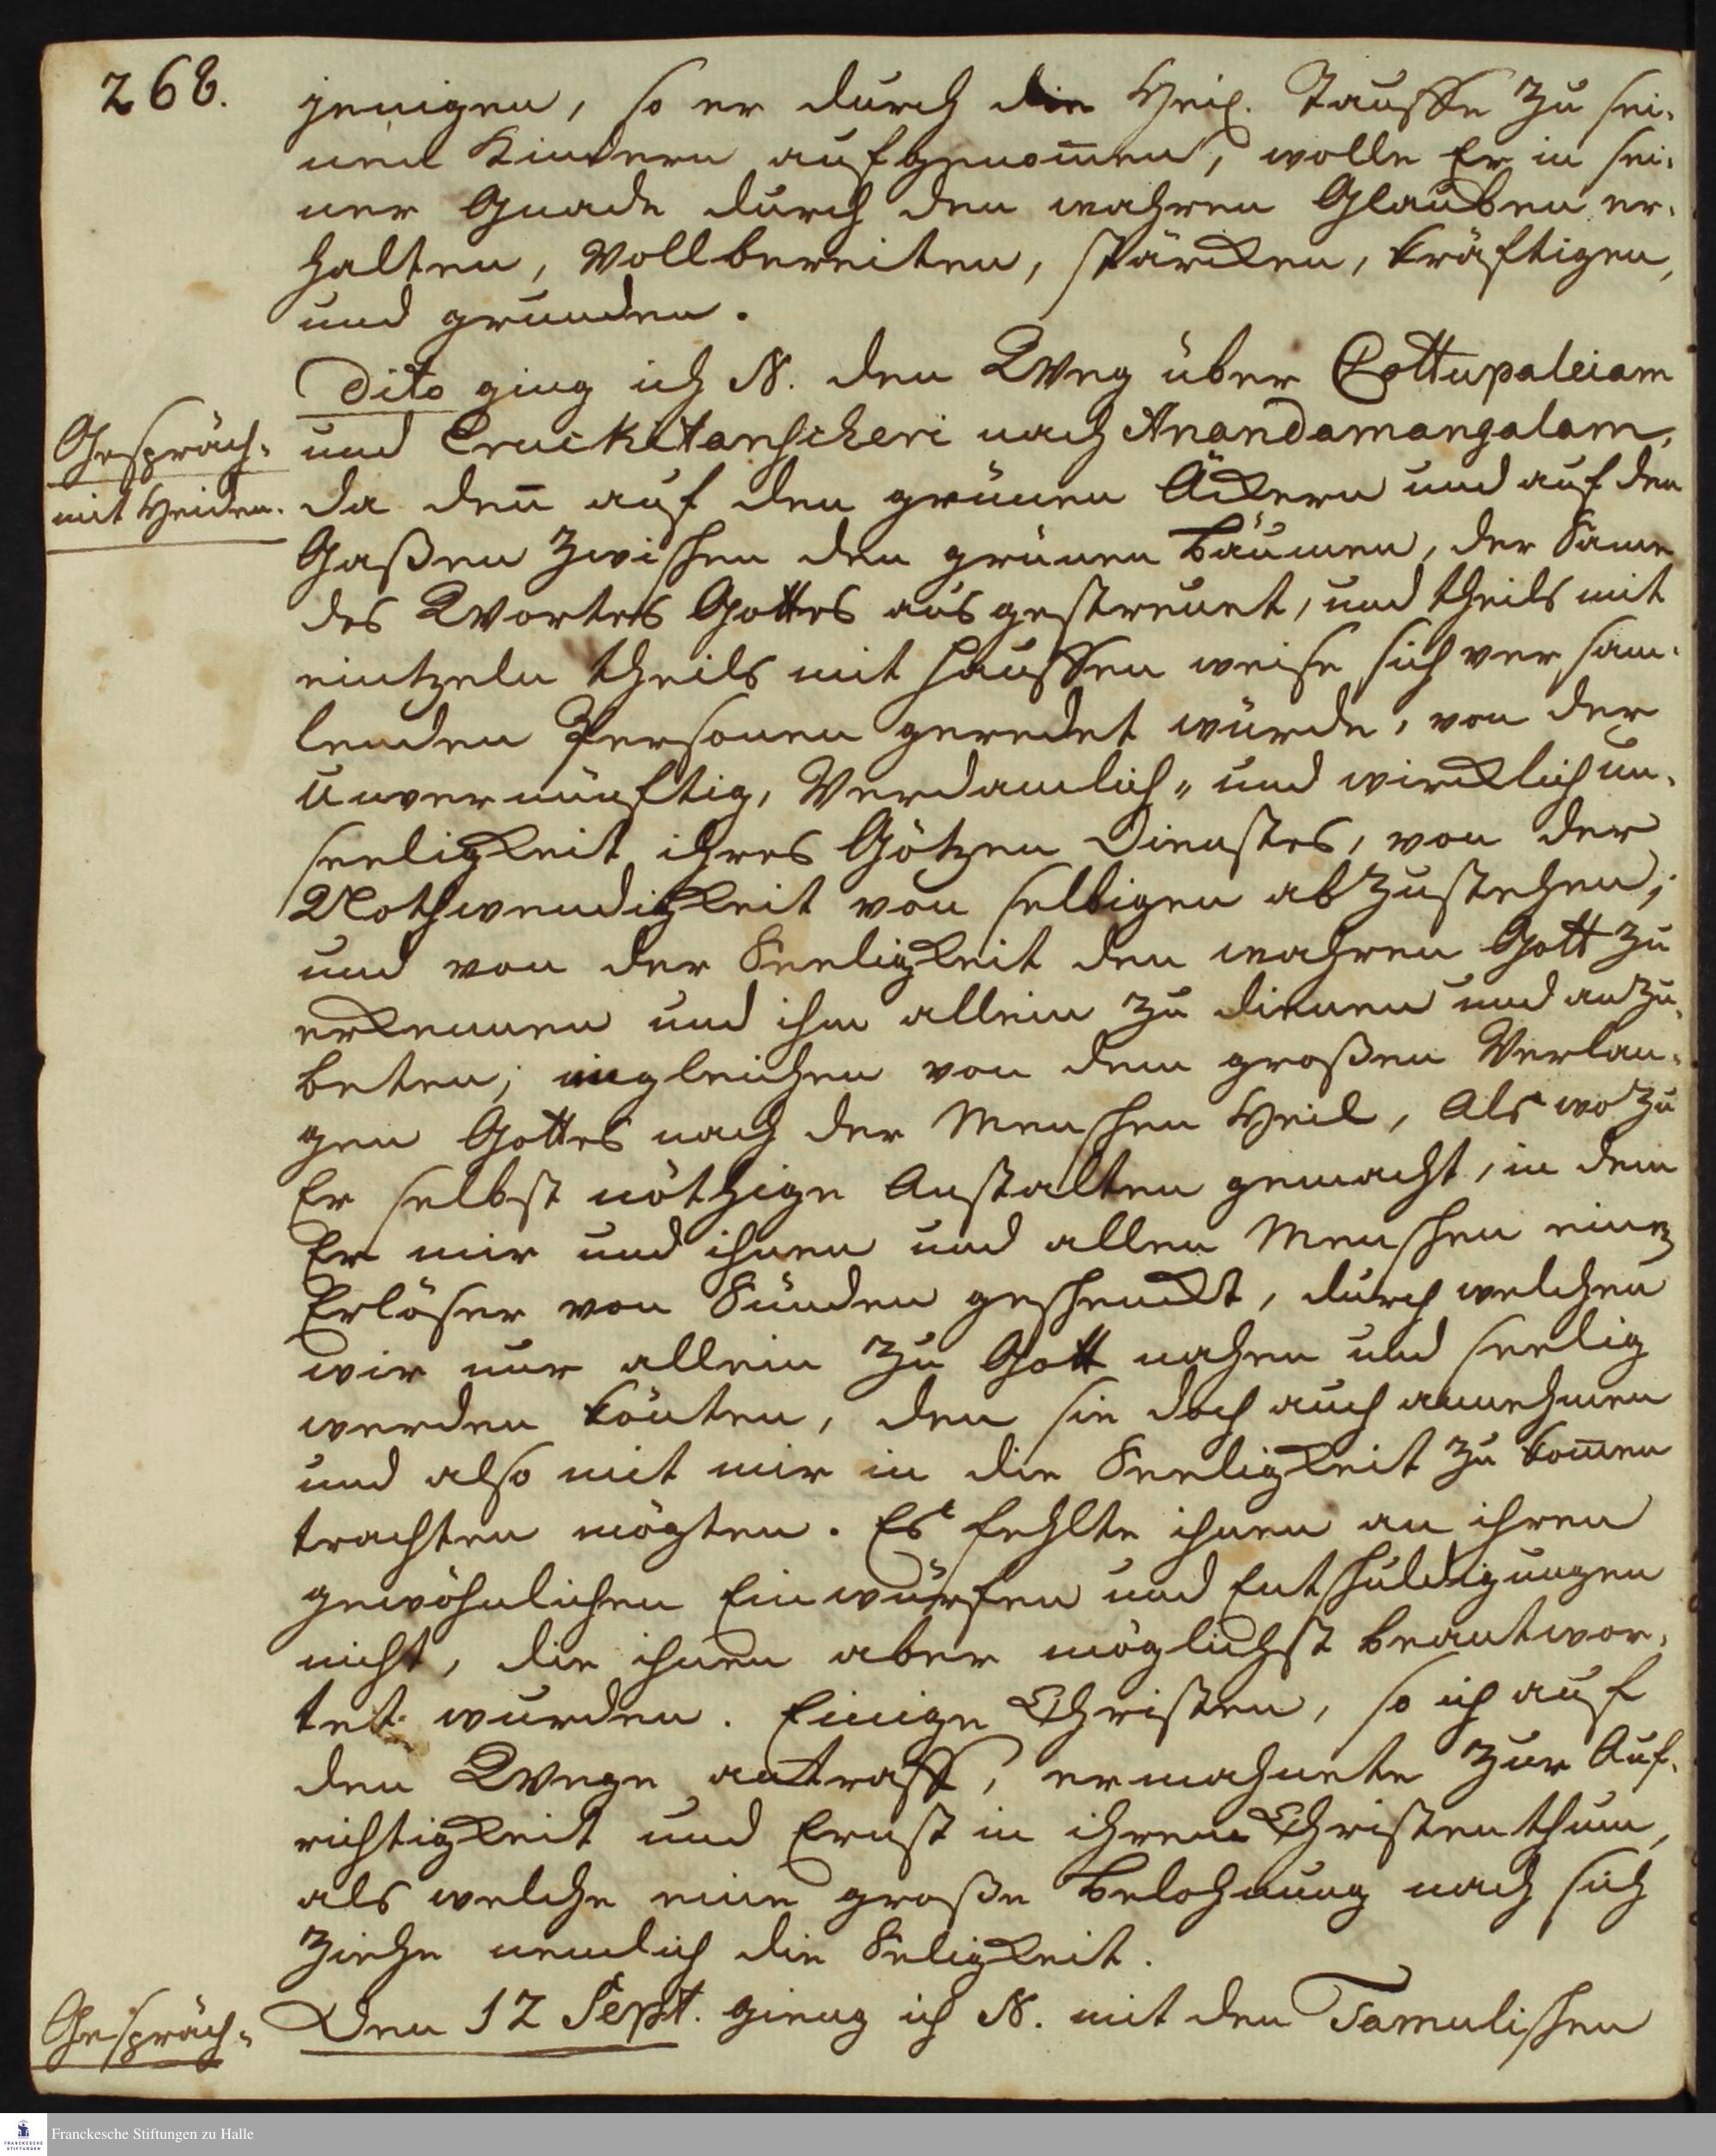 268.
jenigen, so er durch die Heil. Tauffe zu sei-
nen Kindern aufgenom̅en, wolle Er in sei-
ner Gnade durch den wahren Glauben er-
halten, Vollbereiten, stärcken, kräftigen,
und grunden.
Dito ging ich N. den Weg über Cottupaleiam
Gespräch-
und Cruckitanscheri nach Anandamangalam,
mit Heiden.
da den̅ auf den grünen Äckern und auf den
Gaßen zwischen den grünen Bäumen, der Same
des Wortes Gottes ausgestreuet, und theils mit
eintzeln theils mit hauffen weise sich versam-
lenden Personen geredet würde, von der
Unvernünftig, Verdamlich- und wircklich un-
seeligkeit ihres Götzen Dienstes, von der
Nothwendigkeit von selbigen abzustehen;
und von der Seeligkeit den wahren Gott zu
erkennen und ihm allein zu dienen und anzu-
beten; ingleichen von dem großen Verlan-
gen Gottes nach der Menschen Heil, Als wozu
Er selbst nöthige Anstalten gemacht, in dem
Er mir und ihnen und allen Menschen einen
Erlöser von Sünden geschenckt, durch welchen
wir nur allein zu Gott nahen und seelig
werden könten, den sie doch auch annehmen
und also mit mir in die Seeligkeit zu kom̅en
trachten mögten. Es fehlte ihnen an ihren
gewöhnlichen Einwürfen und Entschuldigungen
nicht, die ihnen aber möglichst beantwor-
tet wurden. Einige Christen, so ich auf
den Wege antraff, ermahnete zur Auf-
richtigkeit und Ernst in ihrem Christenthum,
als welche eine große Belohnung nach sich
ziehe nemlich die Seligkeit.
Gespräch-
Den 12 Sept. gieng ich N. mit den Tamulischen
Franckesche Stiftungen zu Halle